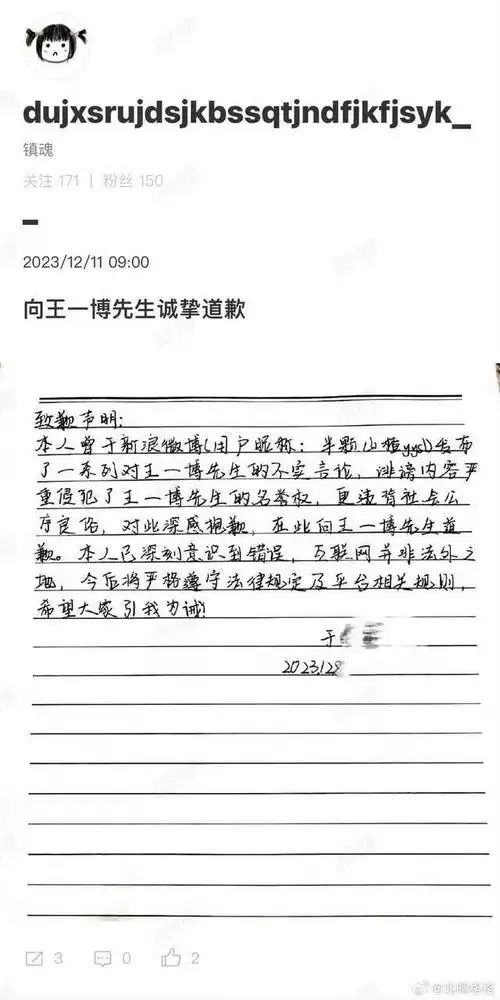 dujxsrujdsjkbssqtjndfjkfjsyk_
镇魂
关注 171 | 粉丝 150
2023/12/11 09:00
向王一博先生诚挚道歉
致歉声明:
本人曾于新浪微博(用户昵称:半颗山楂yysl)发布
了一系列对王一博先生的不实言论,诽谤内容严
重侵犯了王一博先生的名誉权,更违背社会公
序良俗,对此深感抱歉,在此向王一博先生道
歉。本人已深刻意识到错误,互联网并非法外之
地,今后将严格遵守法律规定及平台相关规则,
希望大家引我为诫!
于
2023.12.8
3 0 2